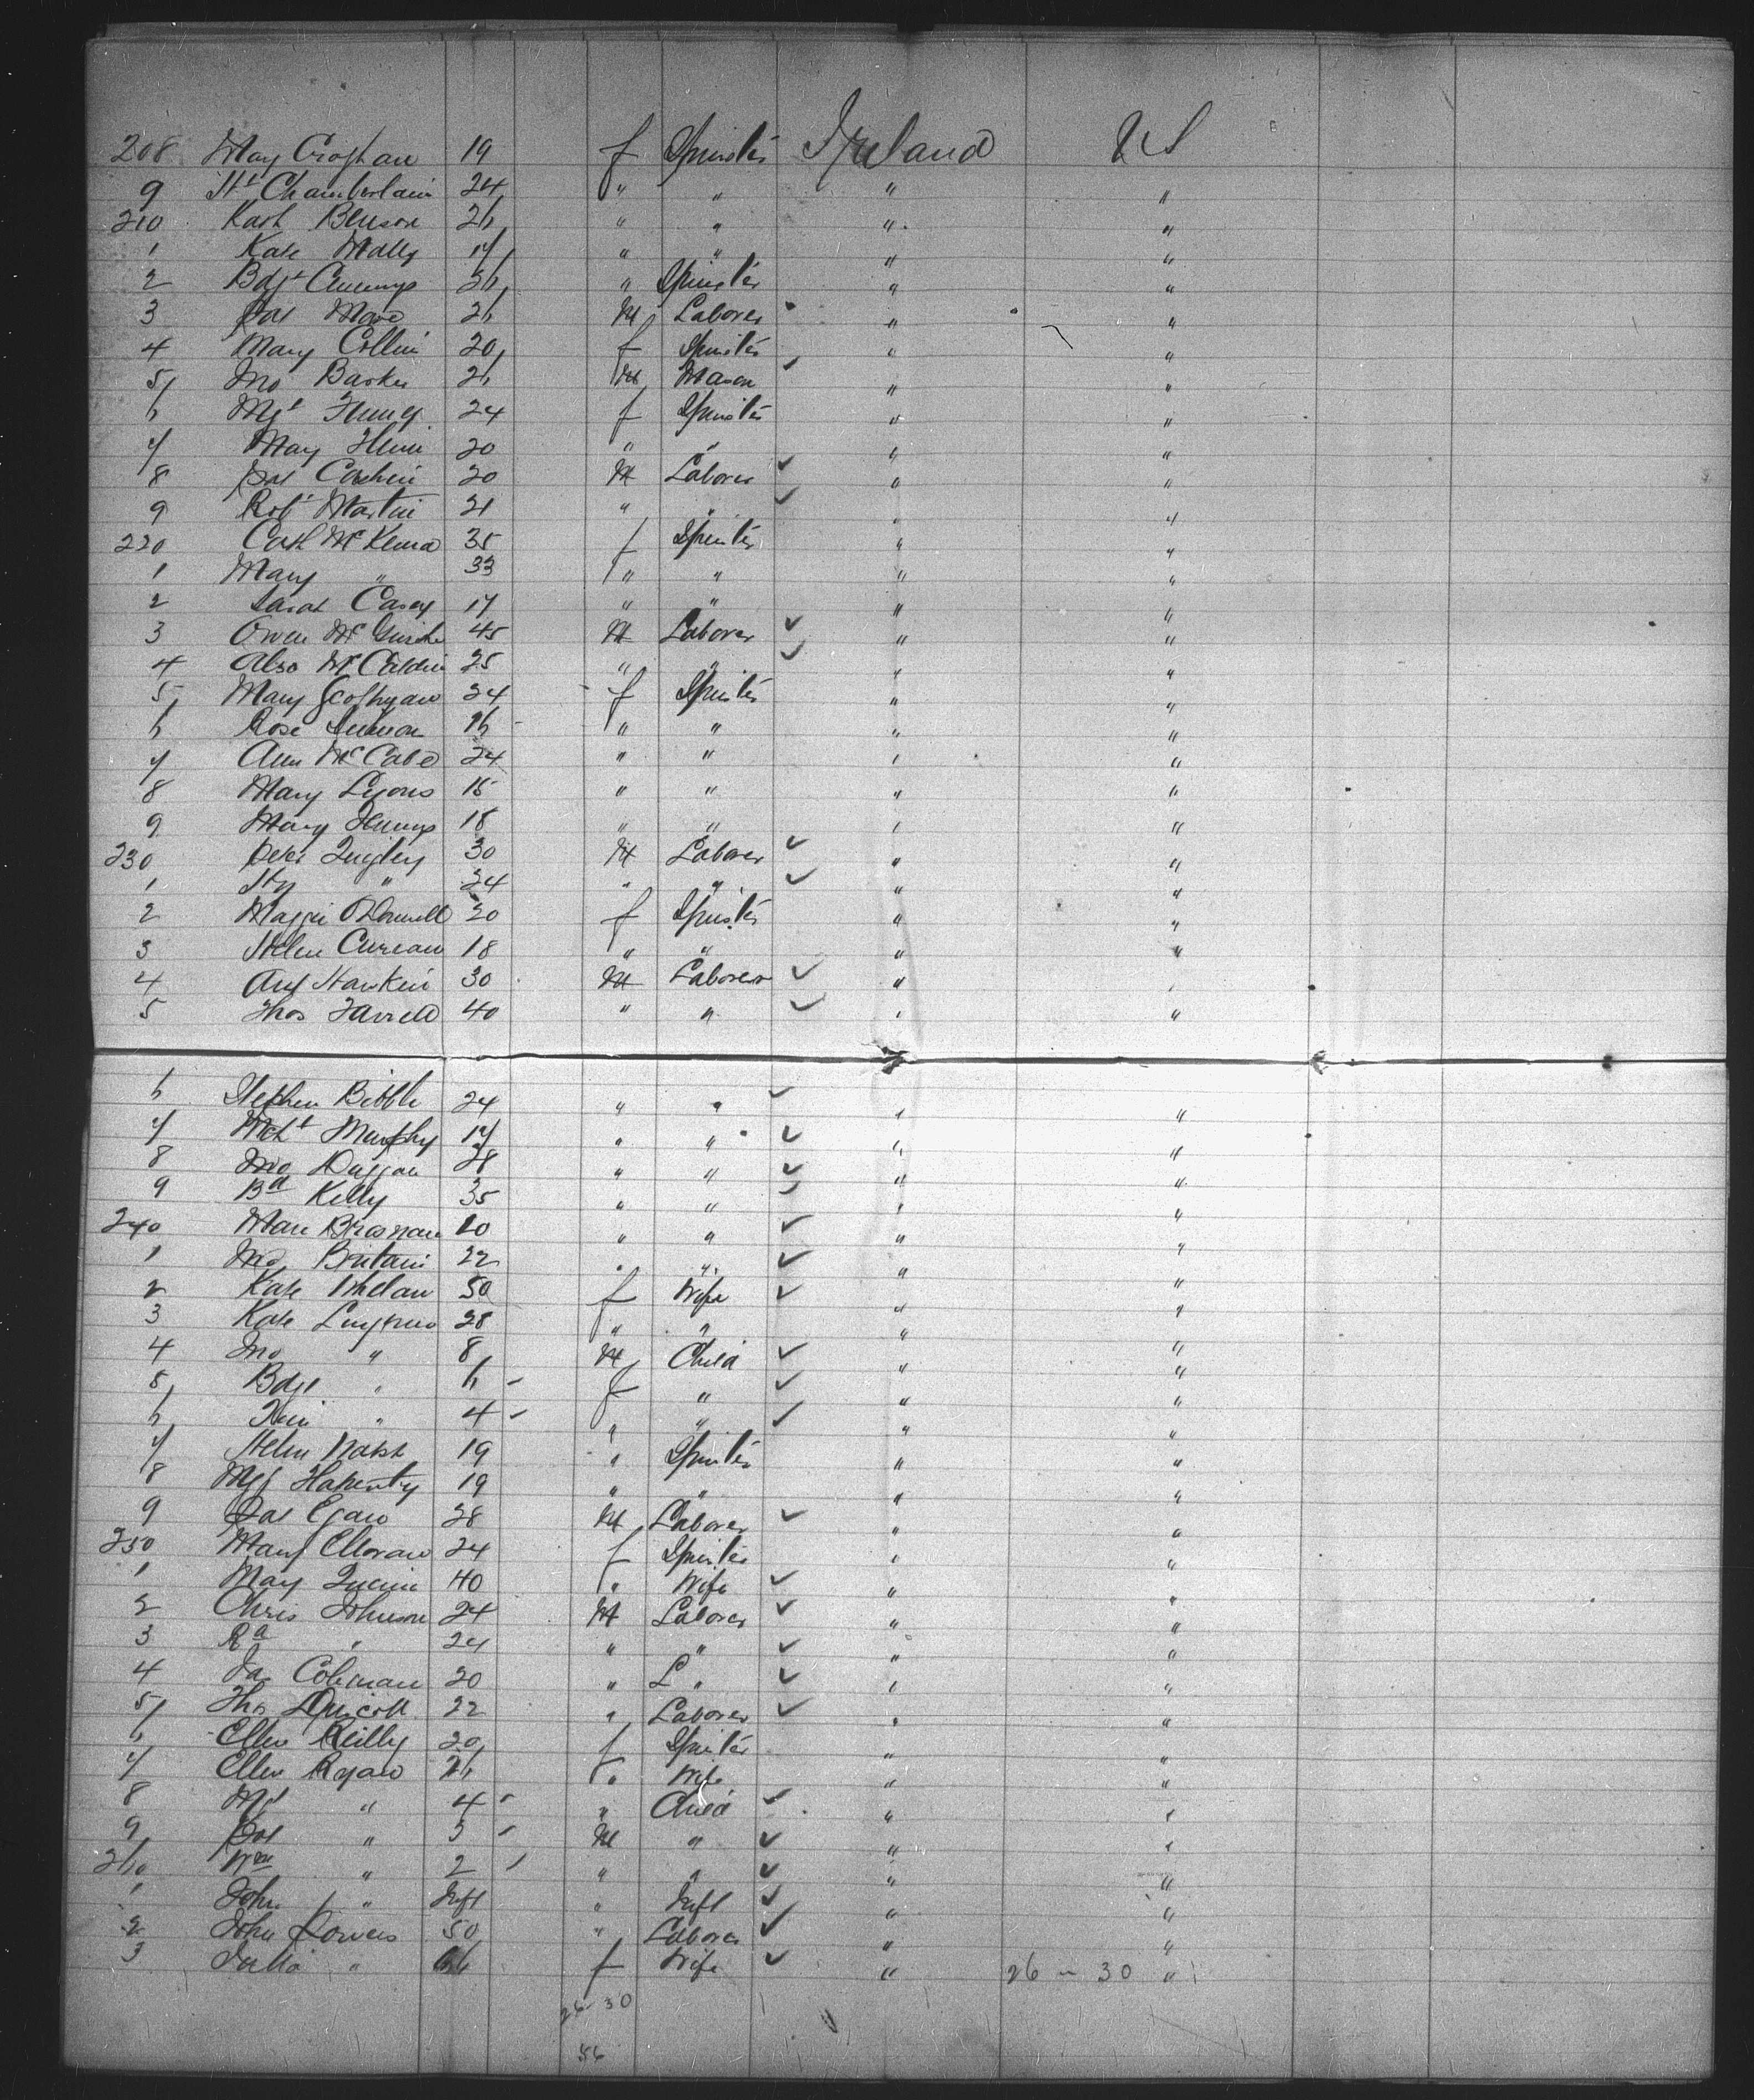 208 May Croghan 19 f Spinster Ireland US
9 Ht Chamberlain 24 " " " "
210 Kath Benson 26 " " " "
1 Kate Mally 17 " " " "
2 Bdgt 26 " Spinster " "
3 Pat 26 M Laborer " "
4 Mary Collin 20 f Spinster " "
5 Jno Barker 26 M Mason " "
6 Mgt 24 f Spinster " "
7 May 20 " " " "
8 Pat 20 M Laborer " "
9 Robt Martin 21 " " " "
220 Cath McKenna 35 f Spinster " "
1 Mary " 33 " " " "
2 Sarah Casey 17 " " " "
3 Owen 45 M Laborer " "
4 25 " " " "
5 Mary 24 f Spinster " "
6 Rose 16 " " " "
7 Ann McCabe 24 " " " "
8 Mary Lyons 15 " " " "
9 Mary 18 " " " "
230 Peter Quigley 30 M Laborer " "
1 Hy " 24 " " " "
2 Maggie O'Donnell 20 f Spinster " "
3 Helen Curran 18 " " " "
4 Hawkin 30 M Laborer " "
5 Thos Farrell 40 " " " "
6 Stephen Bibble 24 " " " "
7 Mat Murphy 17 " " " "
8 Jno Duggan 28 " " " "
9 Bd Kelly 35 " " " "
240 Brosnan 20 " " " "
1 Jno Britain 22 " " " "
2 Kate Whelan 50 f Wife " "
3 Kate 28 " " " "
4 Jno " 8 M Child " "
5 Bdgt " 6 f " " "
6 " 4 " " " "
7 Helen 19 " Spinster " "
8 Mgt 19 " " " "
9 Pat Egan 28 M Laborer " "
250 Mary 24 f Spinster " "
1 May 40 " Wife " "
2 Chris Johnson 24 M Laborer " "
3 Rd " 24 " " " "
4 Jas Coleman 20 " L " " "
5 Thos Driscoll 22 " Laborer " "
6 Ellen Reilly 20 f Spinster " "
7 Ellen Ryan 26 " Wife " "
8 Mgt " 4 " Child " "
9 Pat " 3 M " " "
260 Wm " 2 " " " "
1 John " Inft " Inft " "
2 John Powers 50 " Laborer " "
3 Julia " f Wife " 26 - 30 "
26 30
56